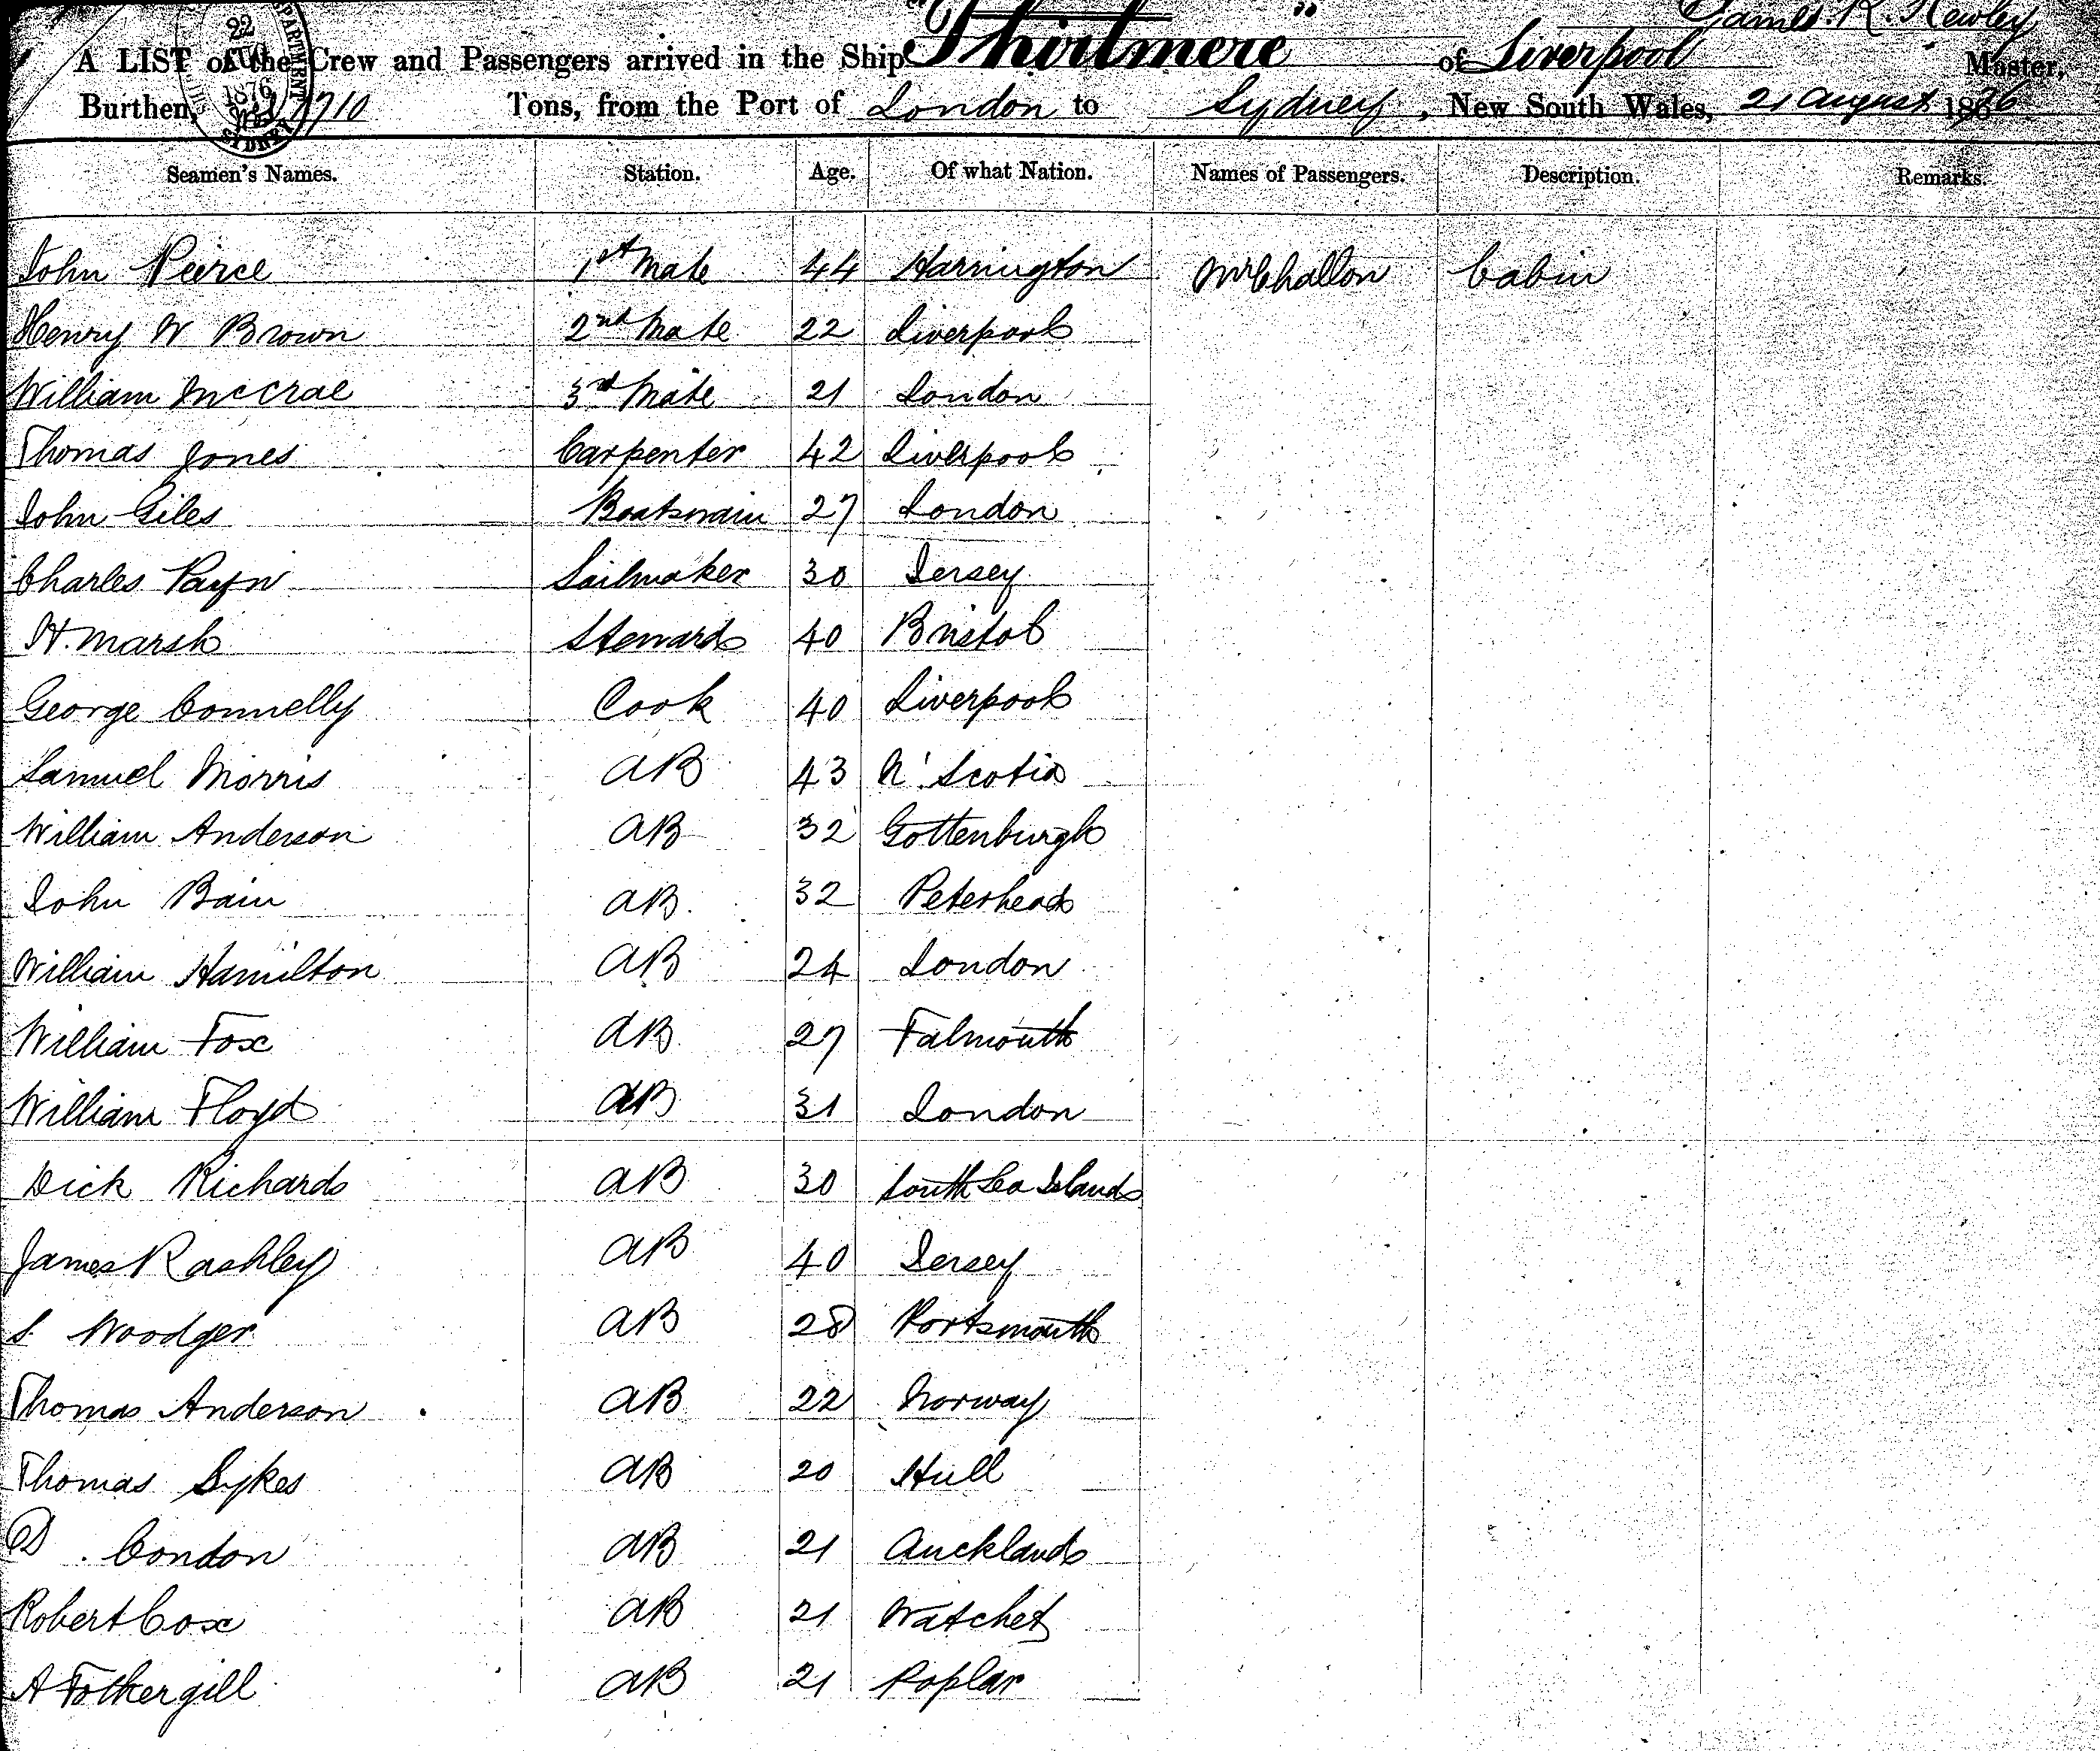 "Thirlmere" James. R. Newley
A LIST of the Crew and Passengers arrived in the Ship of Liverpool Master,
Burthen, 1710 Tons, from the Port of London to Sydney, New South Wales, 21 August 1876
22
1876
Seamen's Names. Station. Age. Of what Nation. Names of Passengers. Description. Remarks.
John Peirce 1st Mate 44 Harrington Mr Challon Cabin
Henry W Brown 2nd Mate 22 Liverpool
William McCrae 3rd Mate 21 London
Thomas Jones Carpenter 42 Liverpool
John Giles Boatswain 27 London
Charles Payn Sailmaker 30 Jersey
H. Marsh Steward 40 Bristol
George Connelly Cook 40 Liverpool
Samuel Morris AB 43 N. Scotia
William Anderson AB 32 Gottenburgh
John Bain AB. 32 Peterhead
William Hamilton AB 24 London
William Fox AB 27 Falmouth
William Floyd AB 31 London
Dick Richards AB 30 South Sea Islands
James Rashley AB 40 Jersey
S. Woodger AB 28 Portsmouth
Thomas Anderson AB 22 Norway
Thomas Sykes AB 20 Hull
D. Condon AB 21 Auckland
Robert Cox AB 21 Watchet
A Fothergill AB 21 Poplar